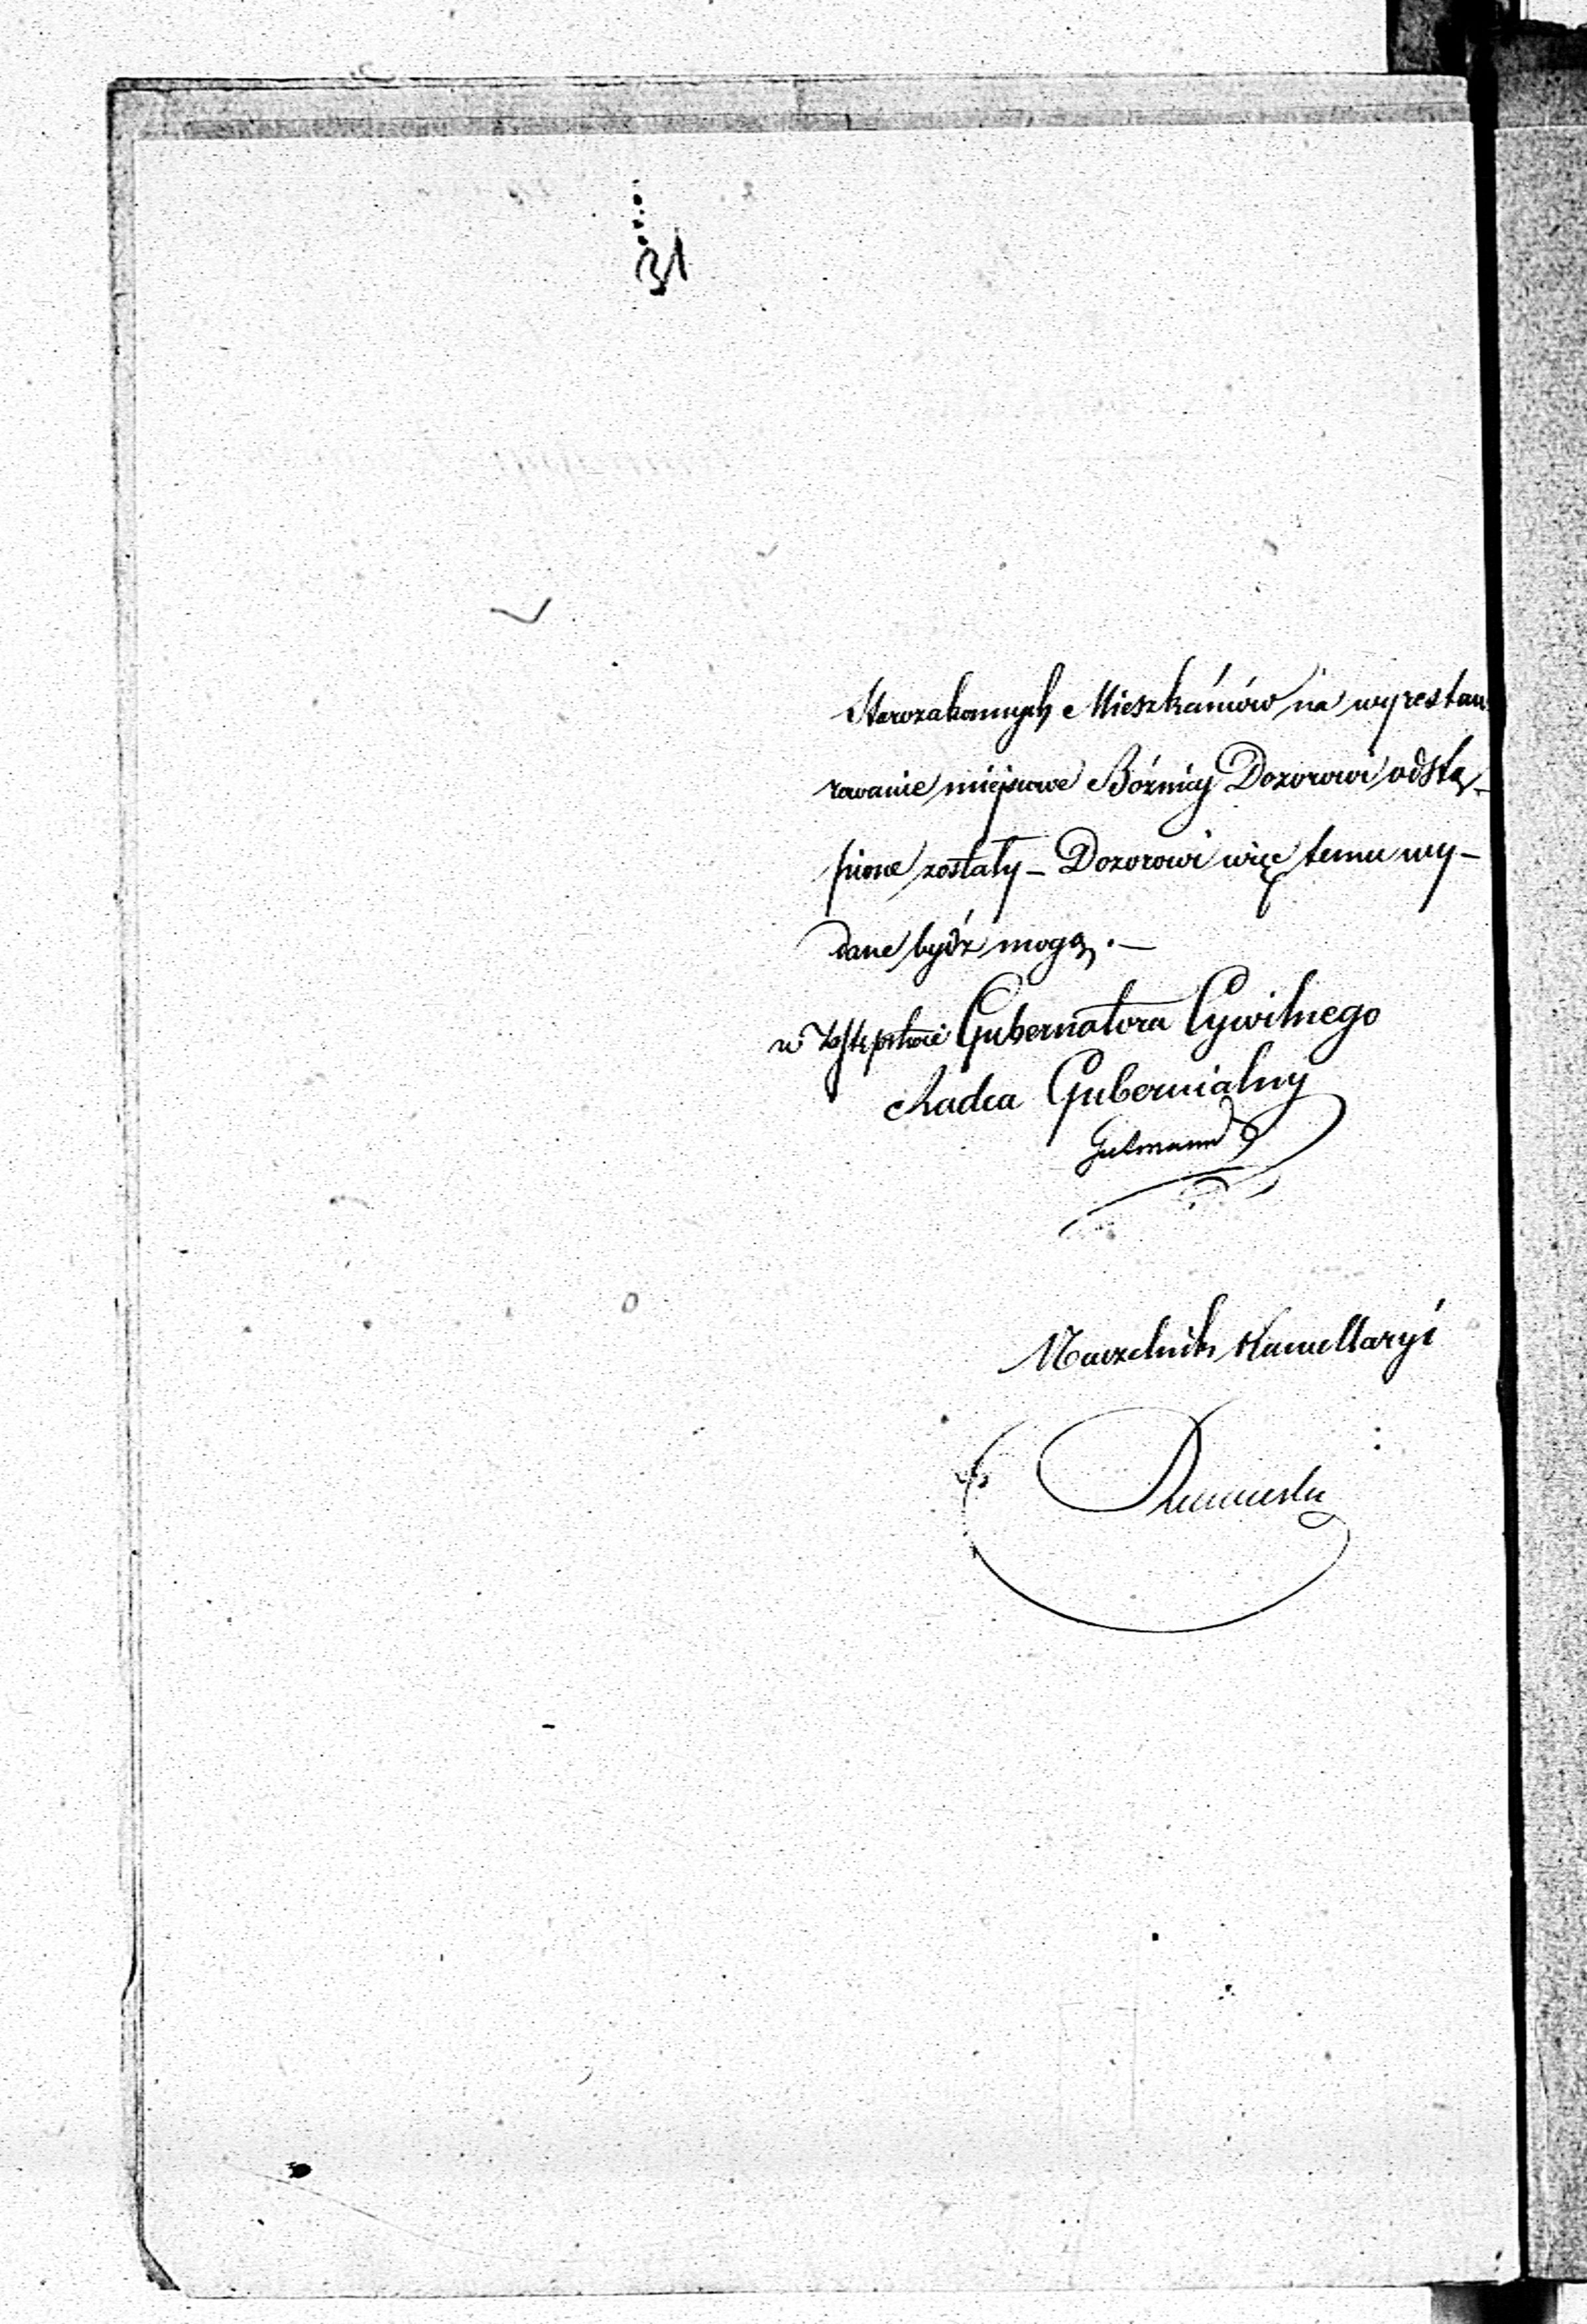 31
Starozakonnych Mieszkańców na wyrestau
rowanie miejscowe Bóżnicy Dozorowi odstą-
pione zostały – Dozorowi więc temu wy-
dane bydź mogą. –
w Zastępstwie Gubernatora Cywilnego
Radca Gubernialny
Naczelnik Kancellaryi